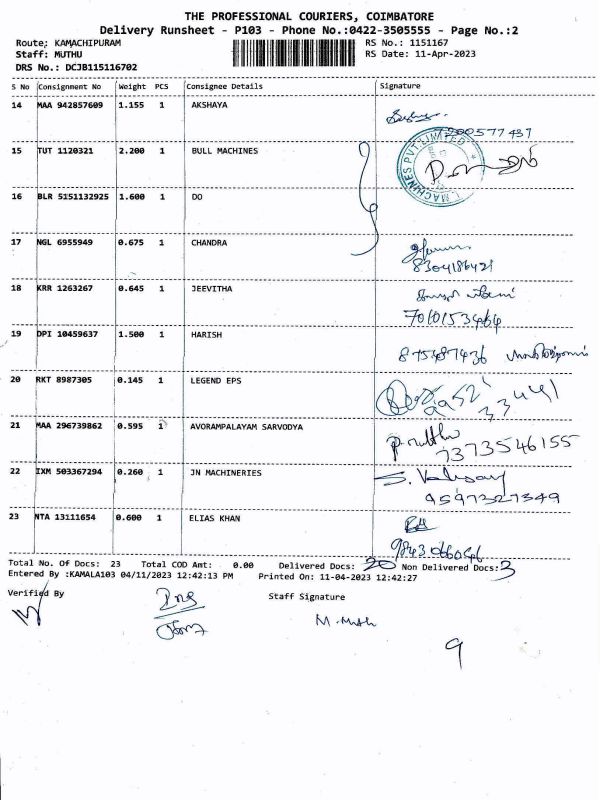 THE PROFESSIONAL COURIERS, COIMBATORE
Delivery Runsheet - P103 - Phone No.:0422-3505555 - Page No.:2
Route: KAMACHIPURAM RS No.: 1151167
Staff: MUTHU RS Date: 11-Apr-2023
DRS No.: DCJB115116702
S No Consignment No Weight PCS Consignee Details Signature
14 MAA 942857609 1.155 1 AKSHAYA
15 TUT 1120321 2.200 1 BULL MACHINES
MACHINES PVT. LIMITED
16 BLR 5151132925 1.600 1 DO
17 NGL 6955949 0.675 1 CHANDRA
8304186421
18 KRR 1263267 0.645 1 JEEVITHA
19 DPI 10459637 1.500 1 HARISH
20 RKT 8987305 0.145 1 LEGEND EPS
21 MAA 296739862 0.595 1 AVORAMPALAYAM SARVODYA
7373546155
22 IXM 503367294 0.260 1 JN MACHINERIES
9597327349
23 NTA 13111654 0.600 1 ELIAS KHAN
9843066046
Total No. Of Docs: 23 Total COD Amt: 0.00 Delivered Docs: 20 Non Delivered Docs: 3
Entered By :KAMALA103 04/11/2023 12:42:13 PM Printed On: 11-04-2023 12:42:27
Verified By Staff Signature
M. Muth
9